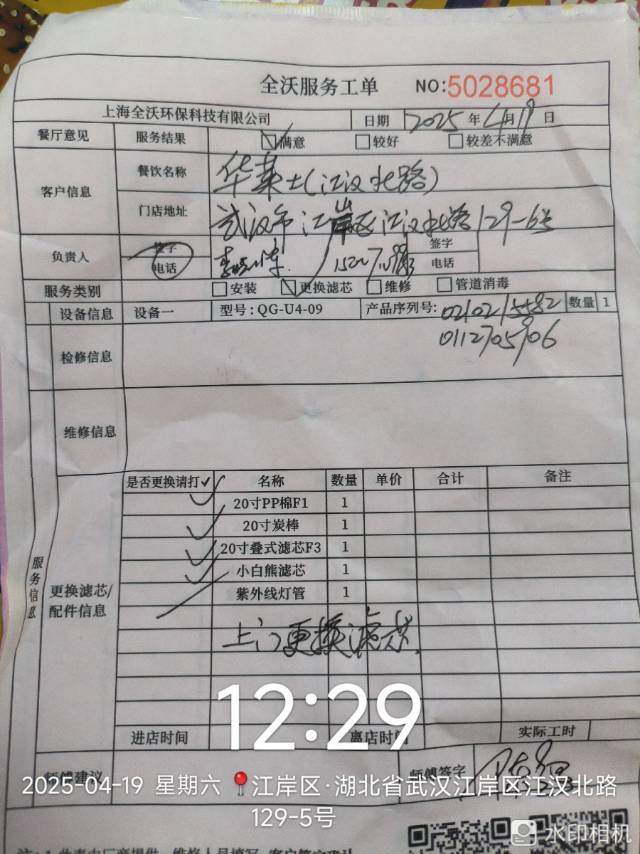 全沃服务工单 NO:5028681
上海全沃环保科技有限公司 日期 2025年4月19日
餐厅意见 服务结果 满意 较好 较差不满意
客户信息 餐饮名称 华莱士(江汉北路)
门店地址 武汉市江岸区江汉北路129-6号
负责人 签字 电话 签字 电话
服务类别 安装 更换滤芯 维修 管道消毒
设备信息 设备一 型号:QG-U4-09 产品序列号: 数量 1
检修信息
维修信息
服务信息
更换滤芯/配件信息
是否更换请打✓ 名称 数量 单价 合计 备注
✓ 20寸PP棉F1 1
✓ 20寸炭棒 1
✓ 20寸叠式滤芯F3 1
✓ 小白熊滤芯 1
紫外线灯管 1
上门更换滤芯
12:29
进店时间 离店时间 实际工时
2025-04-19 星期六 江岸区·湖北省武汉江岸区江汉北路
129-5号
水印相机